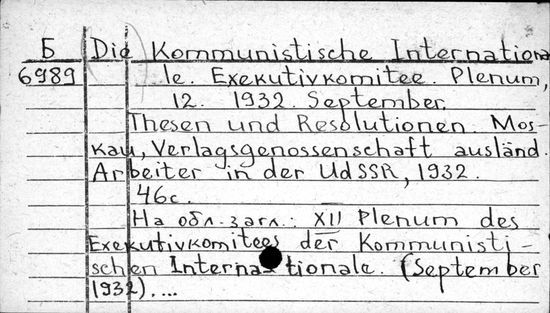 Б Die Kommunistische Internationa
6989 le. Exekutivkomitee. Plenum,
12. 1932. September.
Thesen und Resolutionen. Mos-
kau, Verlagsgenossenschaft ausländ.
Arbeiter in der UdSSR, 1932.
46с.
На обл. загл.: XII Plenum des
Exekutivkomitees der Kommunisti-
schen Internationale. (September
1932)....